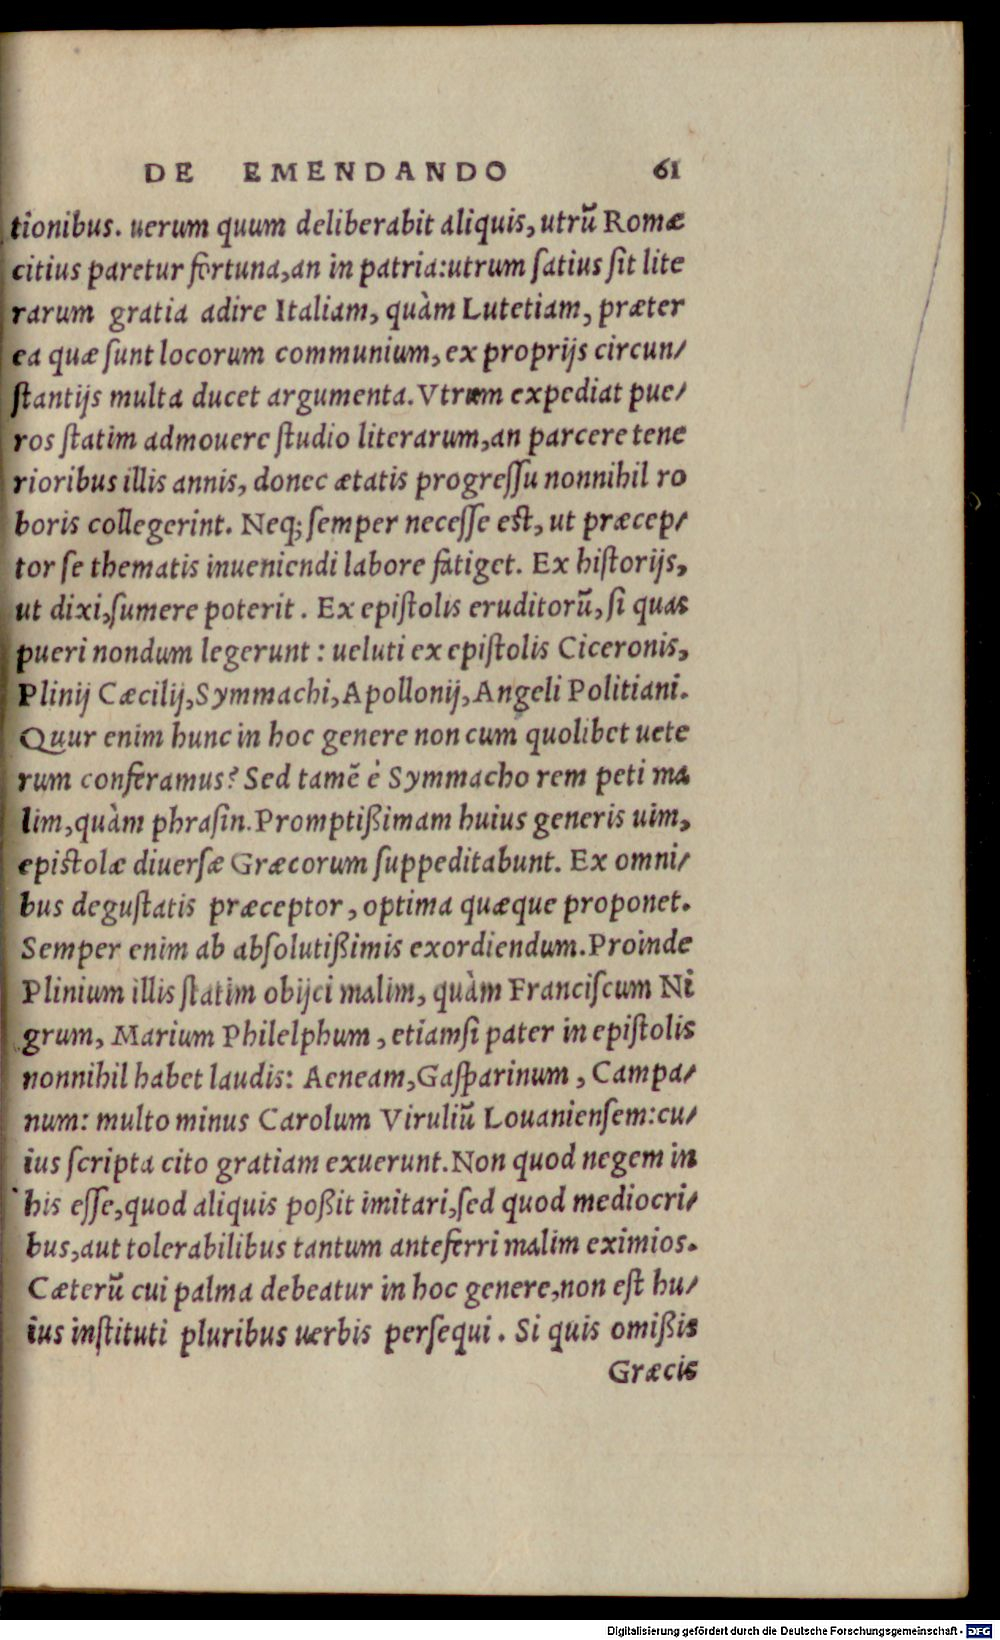 DE EMENDANDO 61
tionibus. uerum quum deliberabit aliquis, utrũ Romæ
citius paretur fortuna, an in patria: utrum ſatius ſit lite
rarum gratia adire Italiam, quàm Lutetiam, præter
ea quæ ſunt locorum communium, ex proprijs circun/
ſtantijs multa ducet argumenta. Vtrum expediat pue/
ros ſtatim admouere ſtudio literarum, an parcere tene
rioribus illis annis, donec ætatis progreſſu nonnihil ro
boris collegerint. Neq; ſemper neceſſe eſt, ut præcep/
tor ſe thematis inueniendi labore fatiget. Ex hiſtorijs,
ut dixi, ſumere poterit. Ex epiſtolis eruditorũ, ſi quas
pueri nondum legerunt: ueluti ex epiſtolis Ciceronis,
Plinij Cæcilij, Symmachi, Apollonij, Angeli Politiani.
Quur enim hunc in hoc genere non cum quolibet uete
rum conferamus? Sed tamẽ è Symmacho rem peti ma
lim, quàm phraſin. Promptißimam huius generis uim,
epiſtolæ diuerſæ Græcorum ſuppeditabunt. Ex omni/
bus deguſtatis præceptor, optima quæque proponet.
Semper enim ab abſolutißimis exordiendum. Proinde
Plinium illis ſtatim obijci malim, quàm Franciſcum Ni
grum, Marium Philelphum, etiamſi pater in epiſtolis
nonnihil habet laudis: Aeneam, Gaſparinum, Campa/
num: multo minus Carolum Viruliũ Louanienſem: cu/
ius ſcripta cito gratiam exuerunt. Non quod negem in
his eſſe, quod aliquis poßit imitari, ſed quod mediocri/
bus, aut tolerabilibus tantum anteferri malim eximios.
Cæterũ cui palma debeatur in hoc genere, non eſt hu/
ius inſtituti pluribus uerbis perſequi. Si quis omißis
Græcis
Digitalisierung gefördert durch die Deutsche Forschungsgemeinschaft - DFG